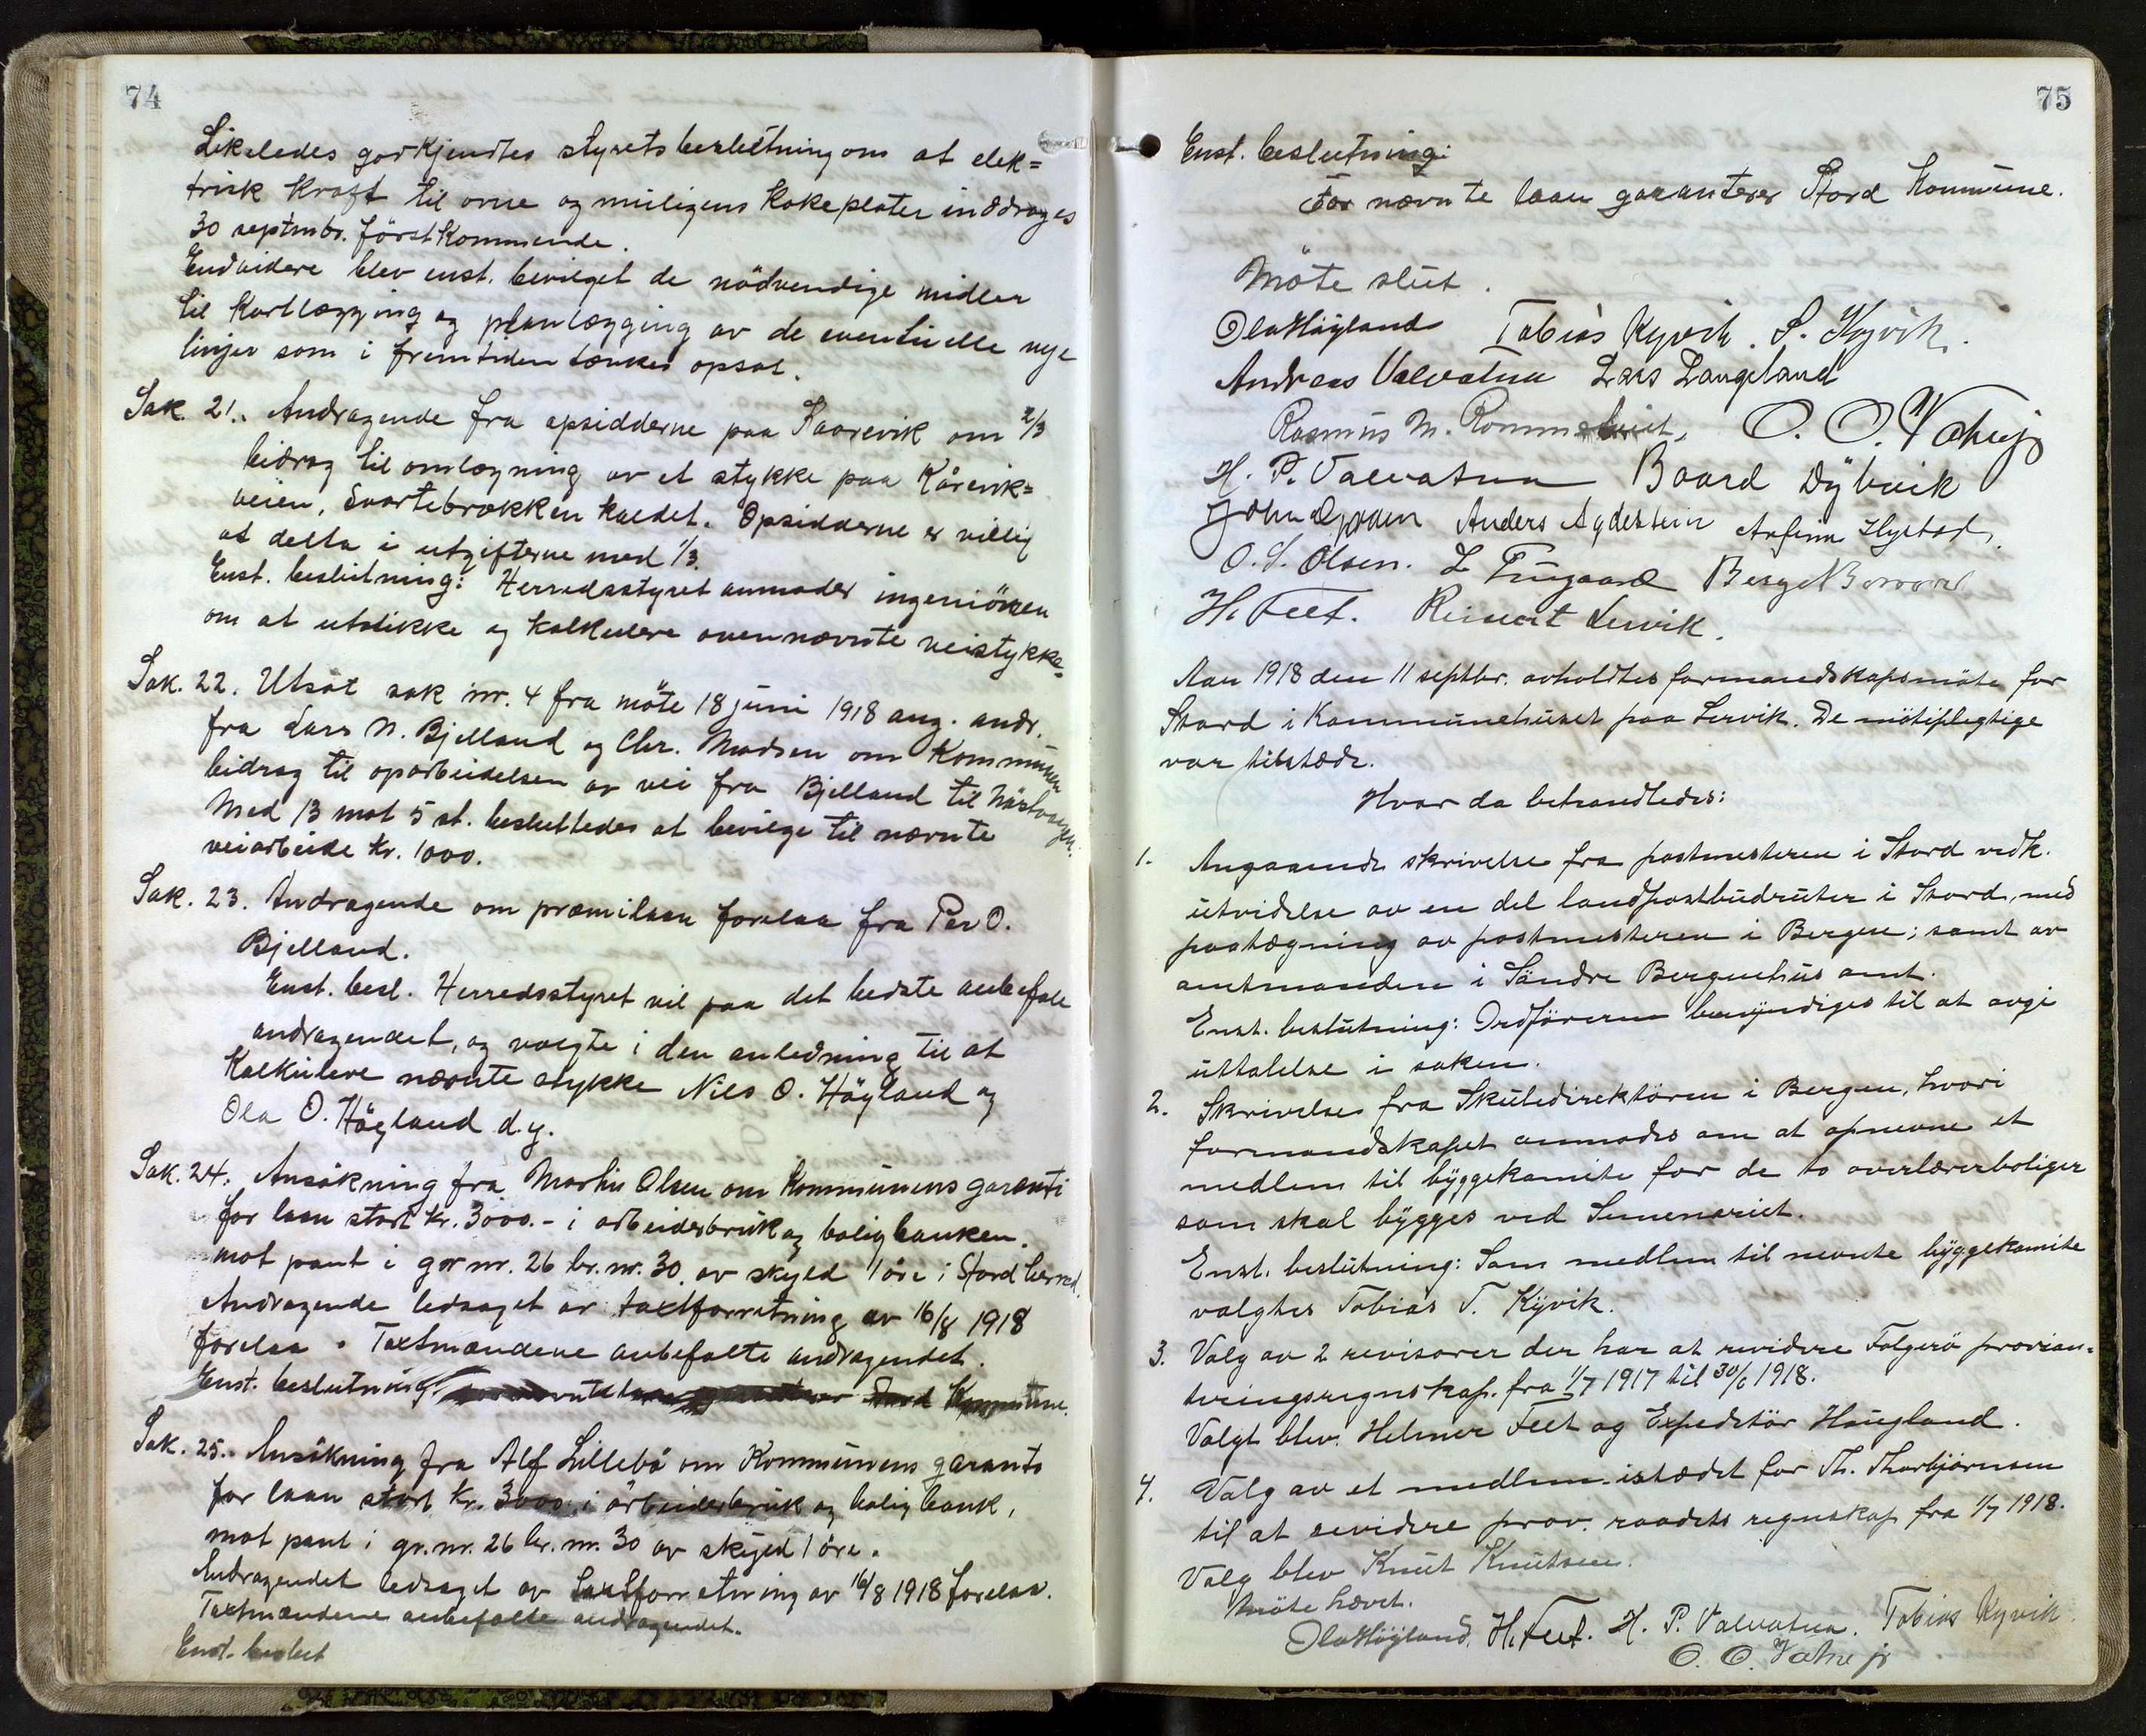 74
Likeledes godkjendtes styrets beslutning om at elek=
trisk kraft til ovne og muligens kokeplater inddrages
30 septmbr. förstkommende.
Endvidere blev enst. bevilget de nödvendige midler
til kartlægging og planlægging av de eventuelle nye
linjer som i fremtiden tænkes opsat.
Sak. 21. Andragende fra opsidderne paa Kaarevik om 2/3
bidrag til omlægning av et stykke paa Kårevik=
veien, Svartebrækken kaldet. Opsidderne er villig
at delta i utgifterne med 1/3.
Enst. beslutning: Herredsstyret anmoder ingeniören
om at utstikke og kalkulere ovennævnte veistykke.
Sak. 22. Utsat sak nr. 4 fra möte 18 juni 1918 ang. andr.
fra Lars N. Bjelland og Chr. Madsen om Kommunen
bidrag til oparbeidelsen av vei fra Bjelland til
Med 13 mot 5 st. besluttedes at bevilge til nævnte
veiarbeide Kr. 1000.
Sak. 23. Andragende om præmilaan forelaa fra Per O.
Bjelland.
Enst. besl. Herredsstyret vil paa det bedste anbefale
andragendet, og valgte i den anledning til at
Kalkulere nævnte stykke Nils O. Höyland og
Ola O. Höyland d.y.
Sak. 24. Ansökning fra Martin Olsen om Kommunens garanti
for laan stort kr. 3000.- i arbeiderbruk og boligbanken.
mot pant i gr nr. 26 br. nr. 30. av skyld 1 öre i Stord herred.
Andragende ledsaget av taxtforretning av 16/8 1918
forelaa. Taxtmændene anbefalte andragendet.
Enst. beslutning: For nævnte laan garanterer Stord Kommune.
Sak. 25. Ansökning fra Alf Lillebö om Kommunens garanti
for laan stort kr. 3000 i arbeiderbruk og boligbank,
mot pant i gr. nr. 26 br. nr. 30 av skyld 1 öre.
Andragendet ledsaget av taxtforretning av 16/8 1918 forelaa.
Taxtmændene anbefalte andragendet.
Enst. beslut
75
Enst. beslutning:
For nævnte laan garanterer Stord Kommune.
Möte slut.
Ola Höyland Tobias Kyvik. S. Kyvik.
Andreas Valvatna Lars Langeland
Rasmus M. Rommetveit, O. O. Vatne jr
H. P. Valvatna Baard Dybvik
John Anders Agdestein Anfinn Hystad.
O. S. Olsen. L Tingaard Berge
H. Feet. Reinert Lervik.
Aar 1918 den 11 septbr. avholdtes formandskapsmöte for
Stord i Kommunehuset paa Lervik. De mötepligtige
var tilstæde.
Hvor da behandledes:
1. Angaaende skrivelse fra postmesteren i Stord vedk.
utvidelse av en del landpostbudruter i Stord, med
paategning av postmesteren i Bergen; samt av
amtmanden i Söndre Bergenhus amt.
Enst. beslutning: Ordföreren bemyndiges til at avgi
uttalelse i saken.
2. Skrivelse fra Skuledirektören i Bergen, hvori
formandskapet anmodes om at opnevne et
medlem til byggekomite for de to overlærerboliger
som skal bygges ved Semenariet.
Enst. beslutning: Som medlem til nevnte byggekomite
valgtes Tobias T. Kyvik.
3. Valg av 2 revisorer der har at revidere Folgerö provian=
teringsregnskap. fra 1/7 1917 til 30/6 1918.
Valgt blev. Helmer Feet og Expeditör Haugland.
4. Valg av et medlem istedet for Th. Thorbjörnsen
til at revidere prov. raadets regnskap fra 1/7 1918.
Valg blev Knut Knutsen.
Möte hævet.
Ola Höyland, H. Feet. H. P. Valvatna. Tobias Kyvik
O. O. Vatne jr